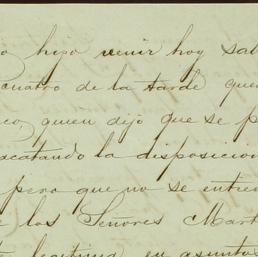 o hizo venir hoy sab
cuatro de la tarde que
co, quien dijo que se p
acatando la disposicion
pero que no se entien
e los Señores Mart
legitima en asunto